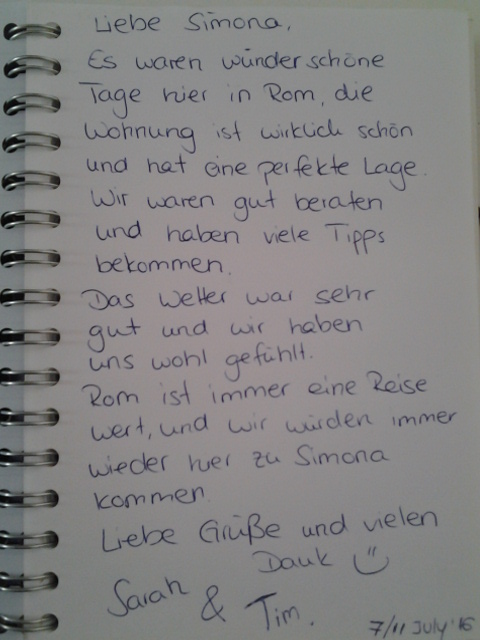 Liebe Simona,
Es waren wunderschöne
Tage hier in Rom, die
Wohnung ist wirklich schön
und hat eine perfekte Lage.
Wir waren gut beraten
und haben viele Tipps
bekommen.
Das Wetter war sehr
gut und wir haben
uns wohl gefühlt.
Rom ist immer eine Reise
wert, und wir würden immer
wieder hier zu Simona
kommen.
Liebe Grüße und vielen
Dank
Sarah & Tim.
7/11 July '16